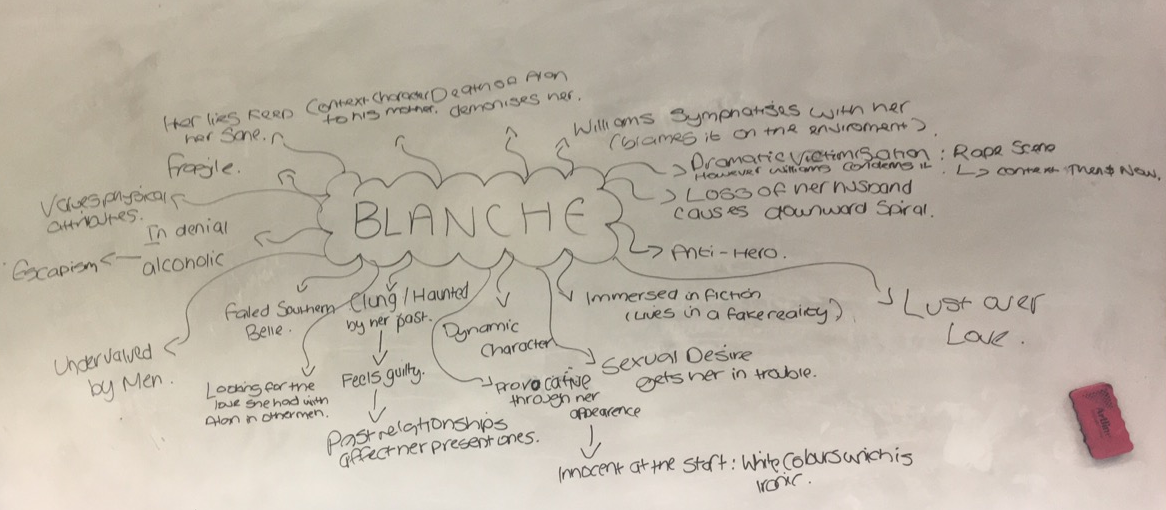 Her lies keep
her sane.
Context Character
to his mother.
Death of Alan
demonises her.
Williams Symphatises with her
(blames it on the enviroment).
Dramatic Victimisation : Rape Scene
However Williams condemns it. ↳ context Then & Now.
Loss of her husband
causes downward spiral.
Anti-Hero.
Lust over
Love.
Fragile.
Values physical
attributes.
In denial
alcoholic
Escapism
BLANCHE
Undervalued
by Men.
Failed Southern
Belle.
Looking for the
love she had with
Alan in other men.
Clung / Haunted
by her past.
Feels guilty.
Past relationships
affect her present ones.
Dynamic
Character
Provocative
through her
appearence
Innocent at the start : White Colours which is
Ironic.
Immersed in fiction
(Lives in a fake reality)
Sexual Desire
gets her in trouble.